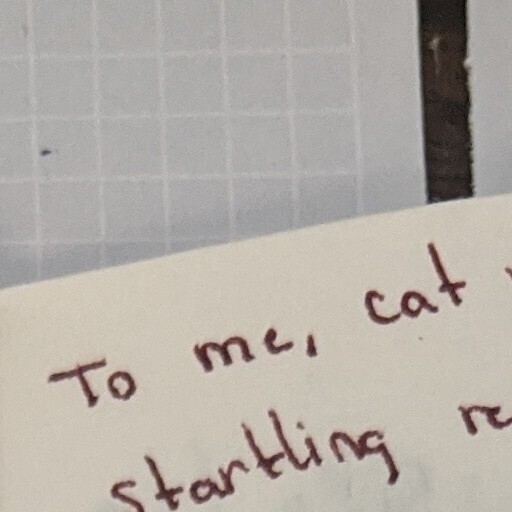 To me, cat
startling